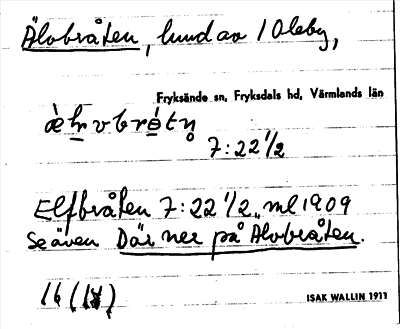 Älvbråten, lund av 1 Oleby,
Fryksände sn, Fryksdals hd, Värmlands län
7:22 1/2
Elfbråten 7:22 1/2, ml 1909
Se även Där ner på Älvbråten.
16 (18)
ISAK WALLIN 1911